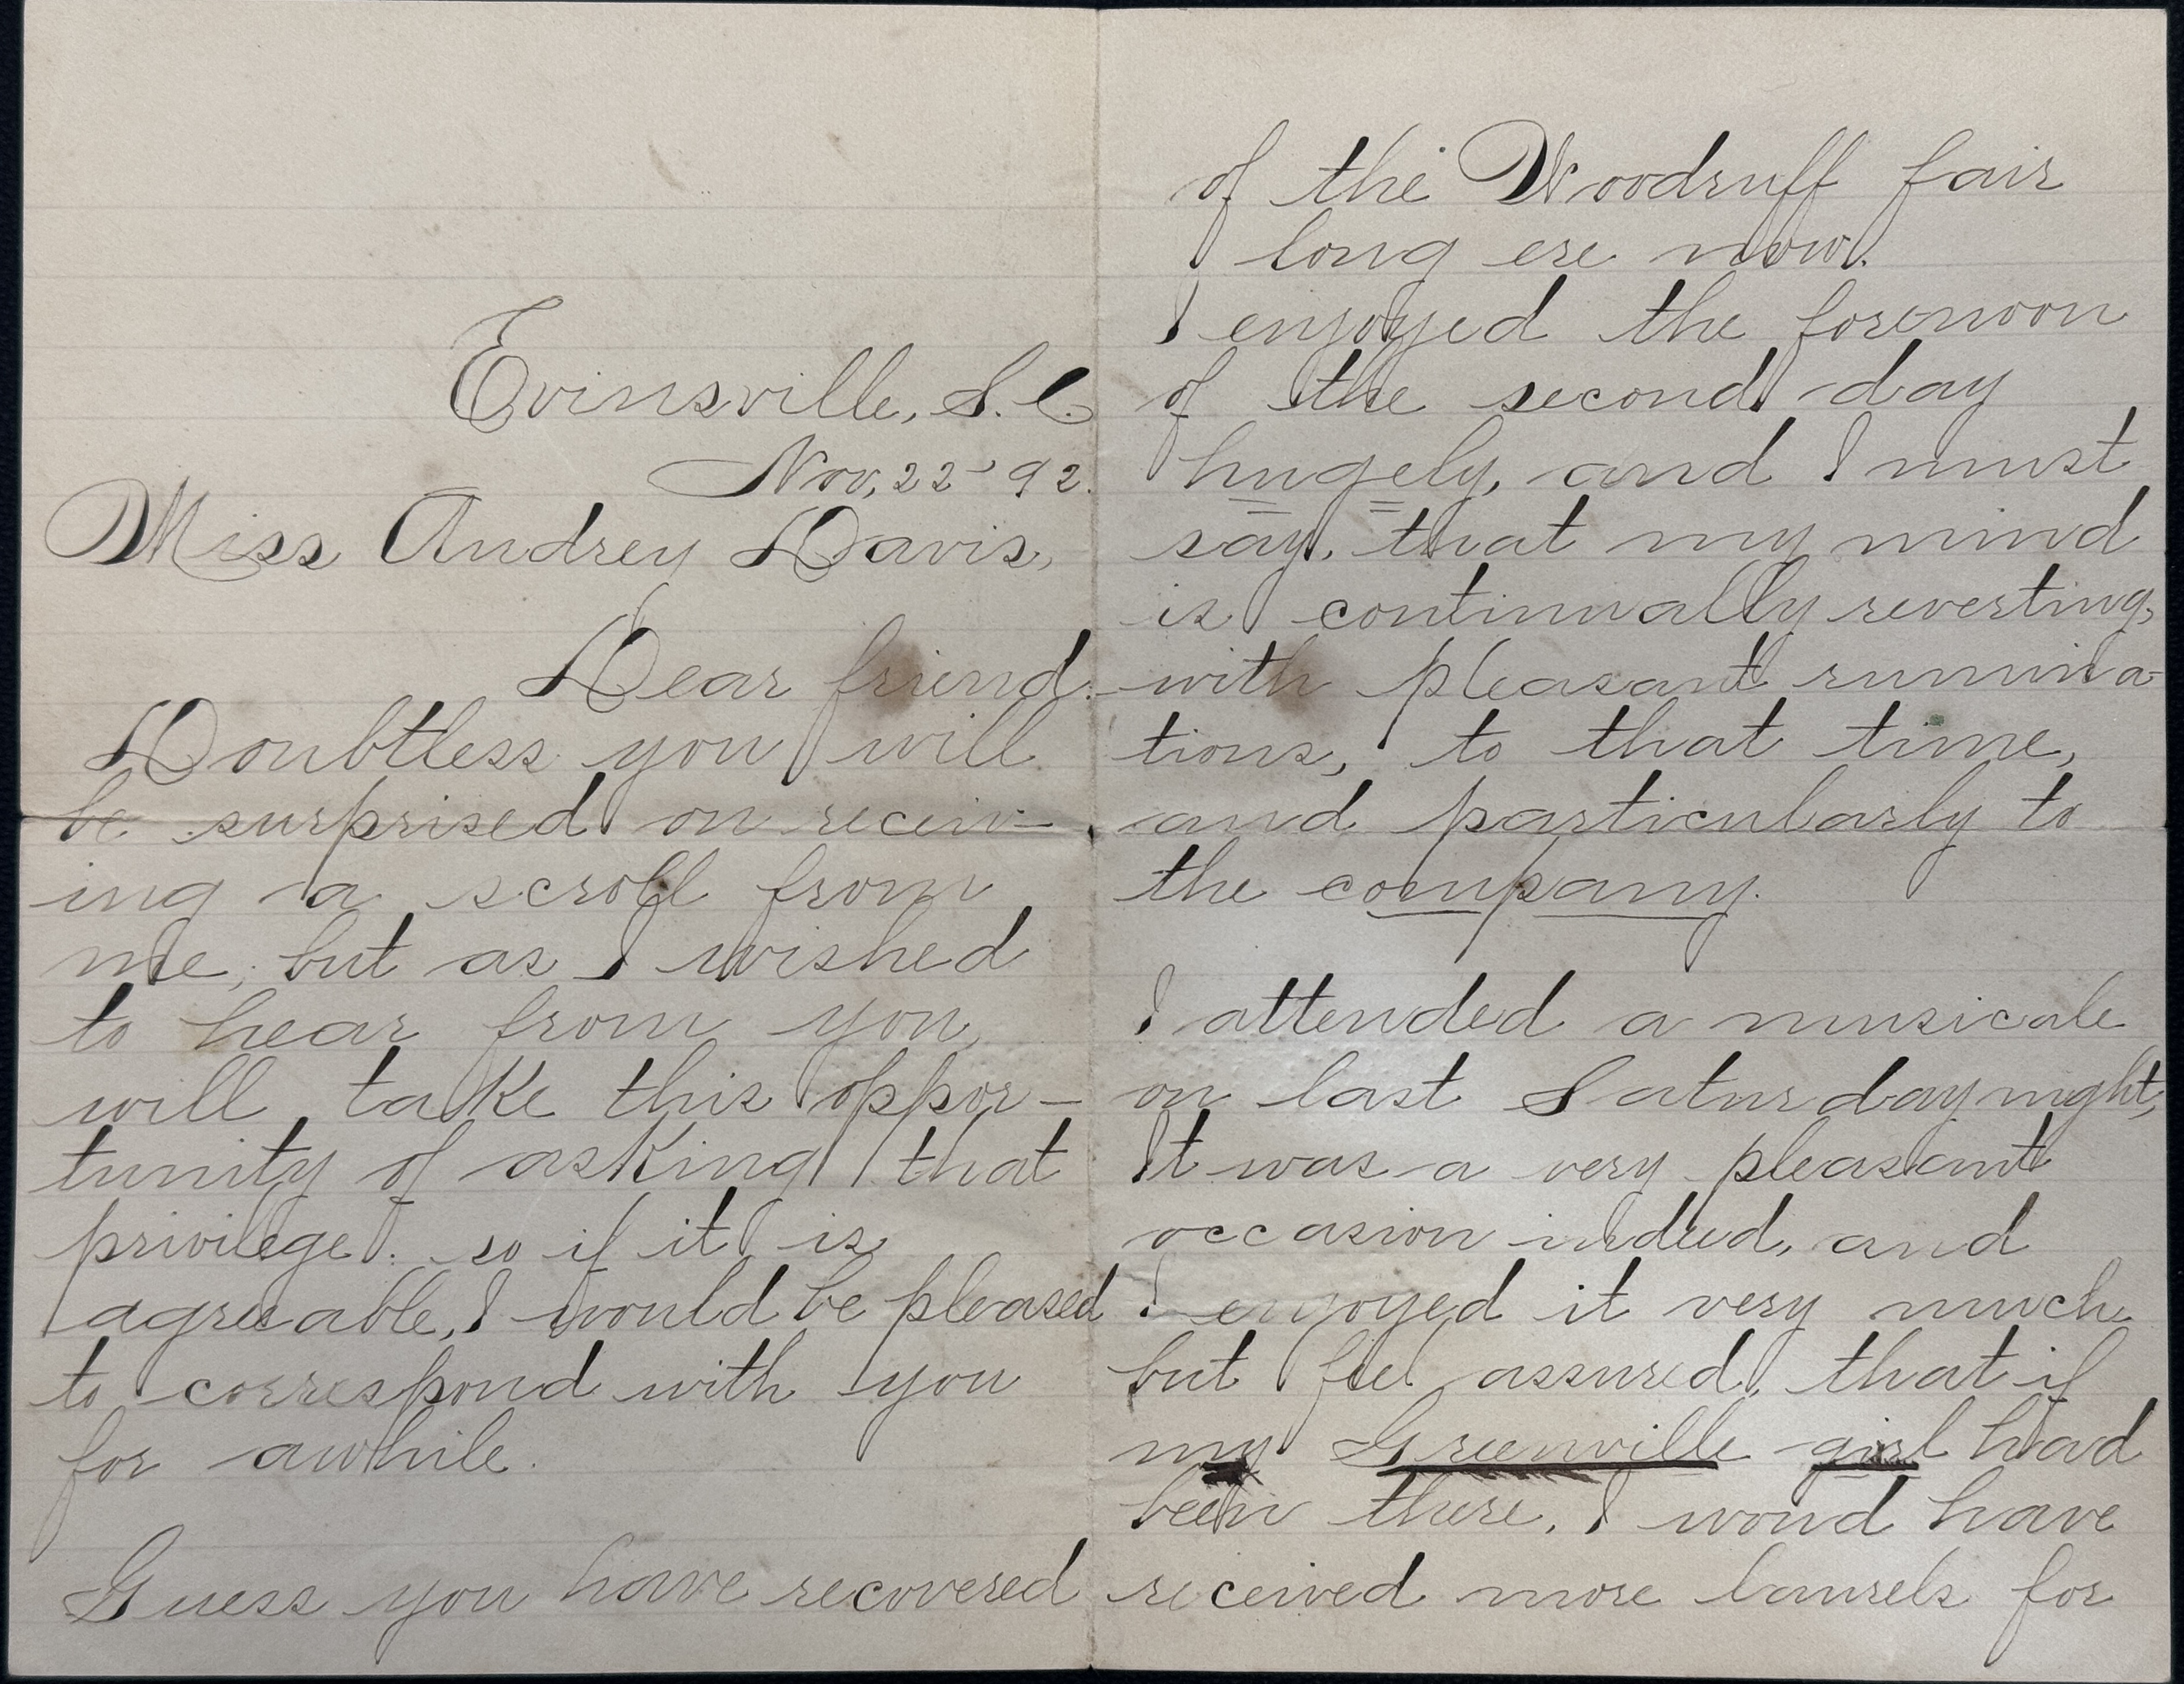 Evinsville, S.C.
Nov, 22' 92.
Miss Audrey Davis,
Dear friend.
Doubtless you will
be surprised on receiv-
ing a scroll from
me, but as I wished
to hear from you,
will take this oppor-
tunity of asking that
privilege. so if it is
agreeable, I would be pleased
to correspond with you
for awhile.
Guess you have recovered
of the Woodruff fair
long ere now.
I enjoyed the forenoon
of the second day
hugely, and I must
say, that my mind
is continually reverting,
with pleasant rumina-
tions, to that time,
and particularly to
the company.
I attended a musicale
on last Saturday night,
It was a very pleasant
occasion indeed, and
I enjoyed it very much
but feel assured, that if
my Greenville girl had
been there, I woud have
received more laurels for